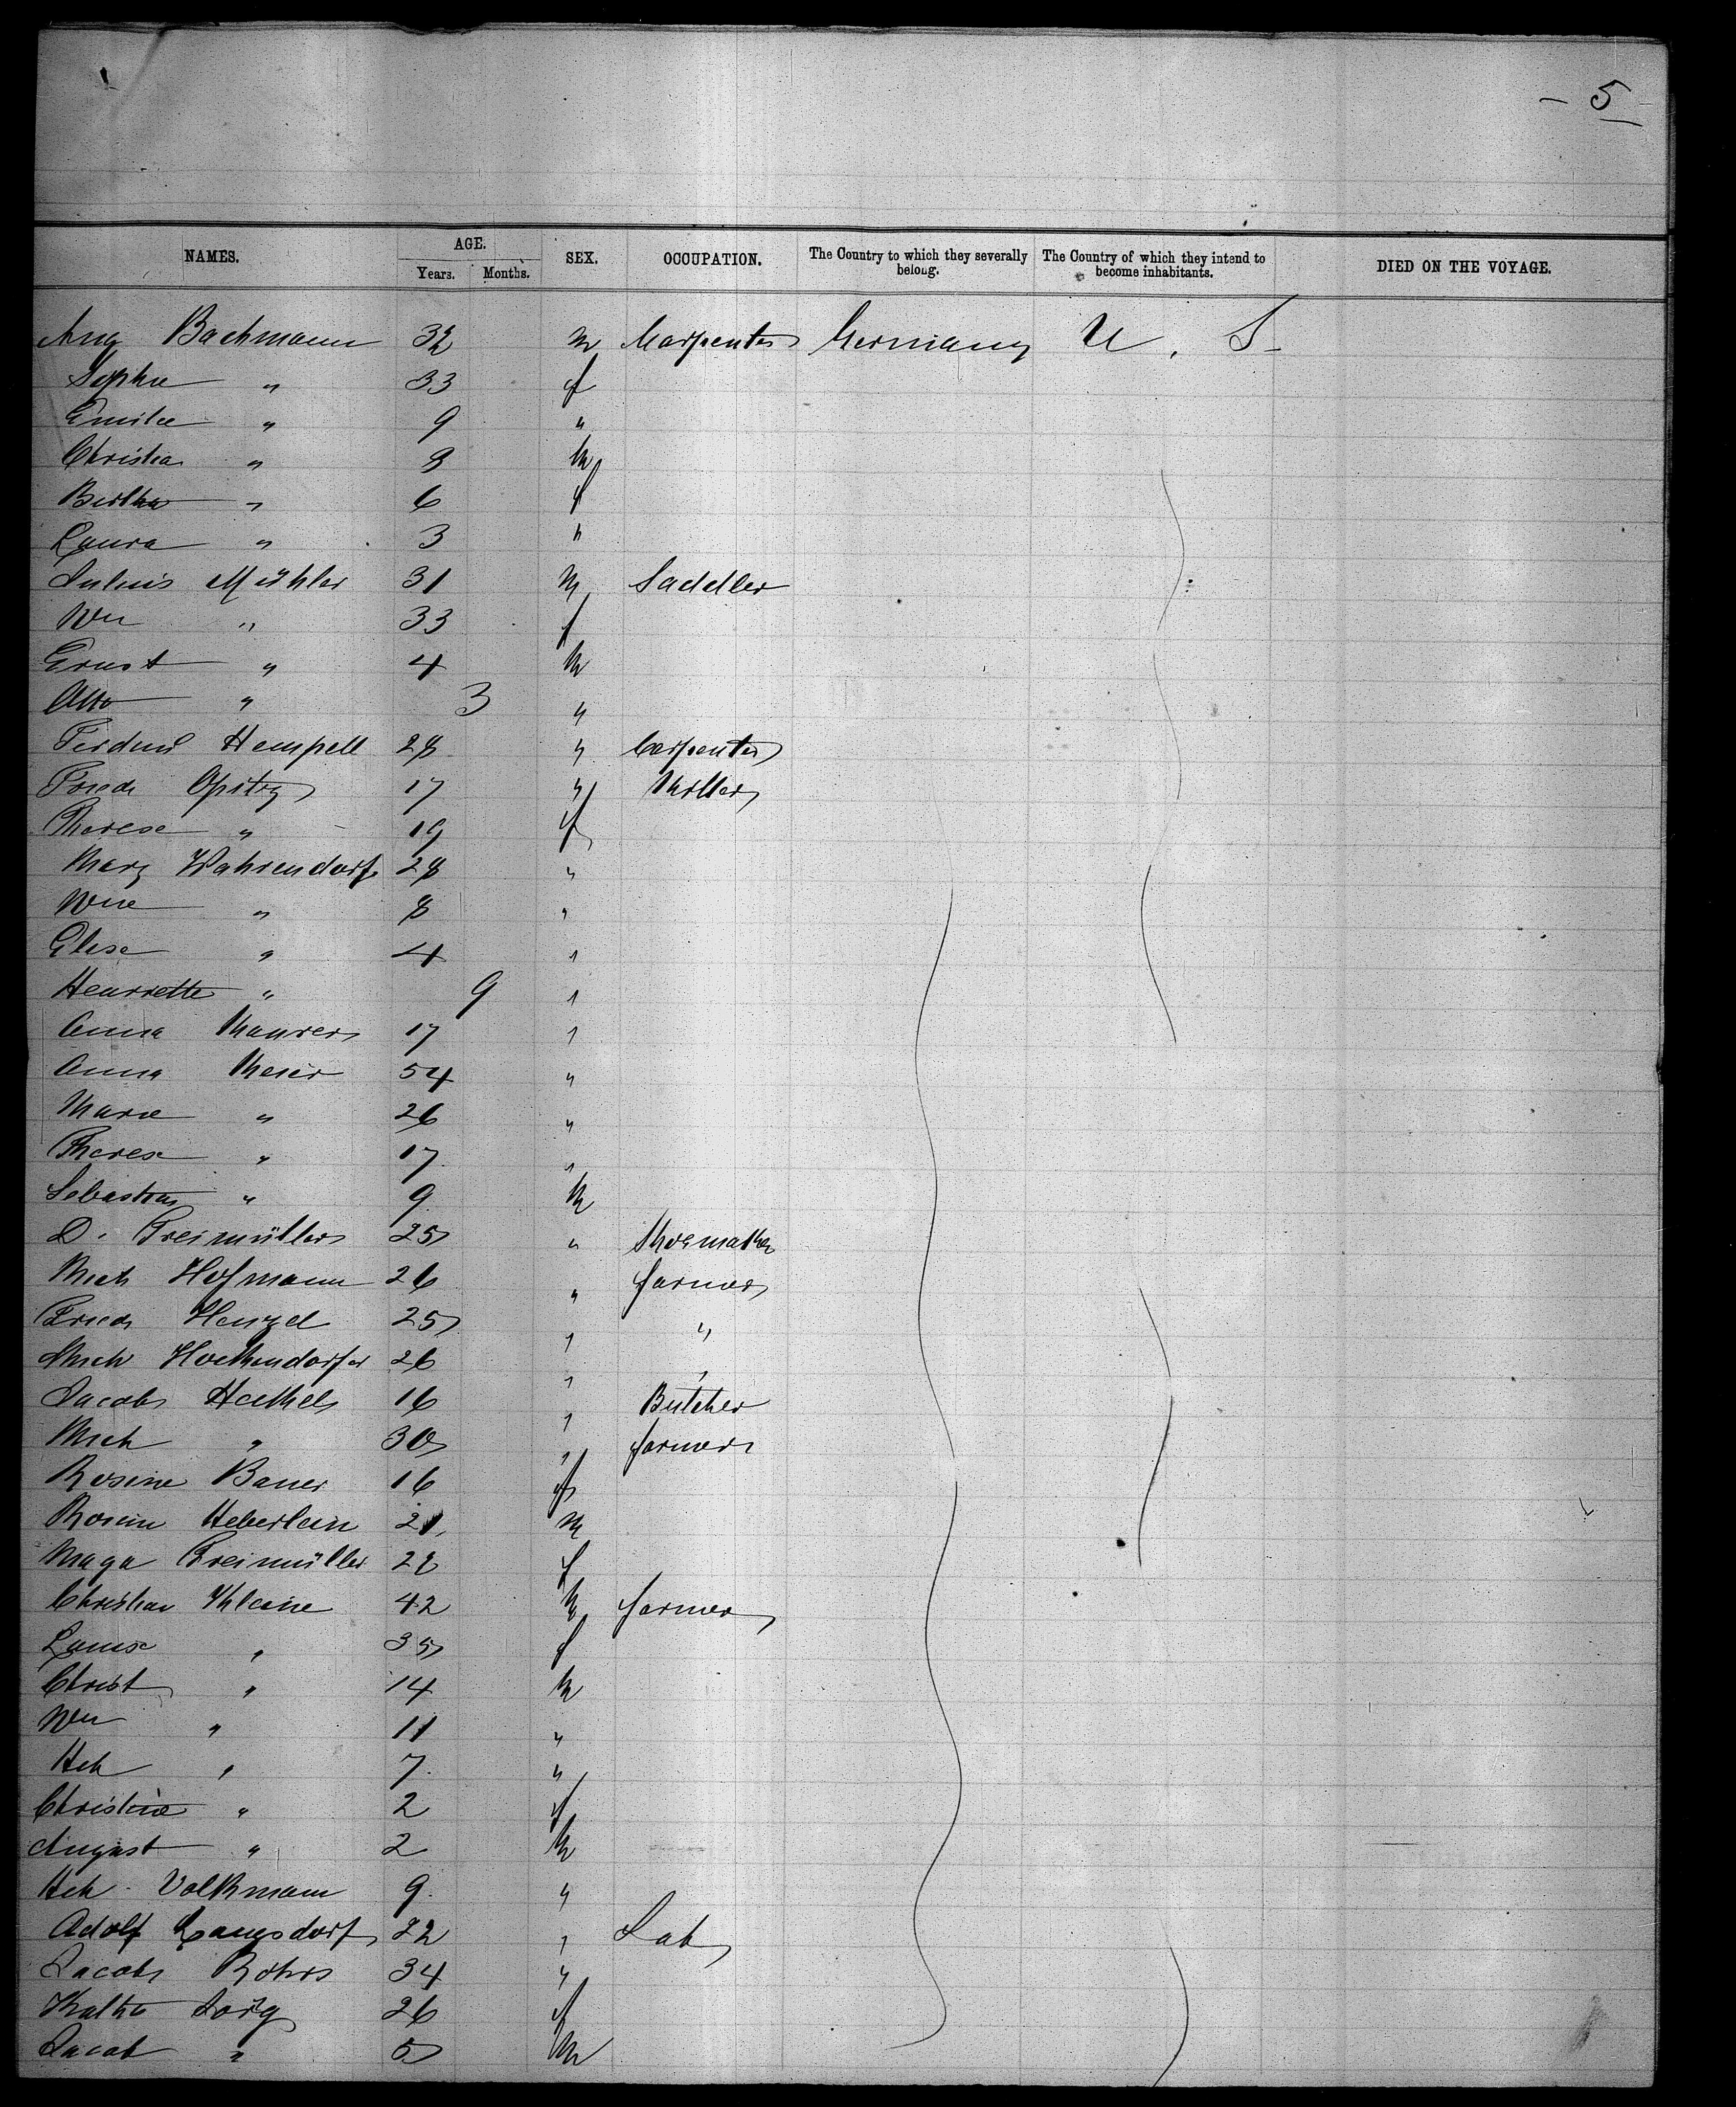 - 5 -
NAMES. AGE. Years. Months. SEX. OCCUPATION. The Country to which they severally belong. The Country of which they intend to become inhabitants. DIED ON THE VOYAGE.
Aug Bachmann 32 m Carpenter Germany U. S.
Sophie " 33 f
Emilie " 9 "
Christian " 8 m
Bertha " 6 f
Laura " 3 "
Julius Mühler 31 m Saddler
Wm " 33 f
Ernst " 4 m
Otto " 3 "
Ferdind Hempell 28 " Carpenter
Friedr Opitz 17 " Miller
Therese " 19 f
Marg Wahrendorf 28 "
Wme " 8 "
Elise " 4 "
Henriette " 9 "
Anna Maurer 17 "
Anna Meier 54 "
Marie " 26 "
Therese " 17 "
Sebastian " 9 m
D. Freimüller 25 " Shoemaker
Mich Hofmann 26 " farmer
Friedr Henzel 25 " "
Mich 26 " "
Jacob 16 " Butcher
Mich " 30 " farmer
Rosine Bauer 16 f
Heberlein 21 m
Maga Freimüller 22 f
Christian Kleine 42 m farmer
Louise " 35 f
Christ " 14 m
Wm " 11 "
Hch " 7 "
Christine " 2 f
August " 2 m
Hch Volkmann 9 "
Adolf Langsdorf 22 " Lab
Jacob Rohrs 34 "
Katha Sorg 26 f
Jacob " 5 m